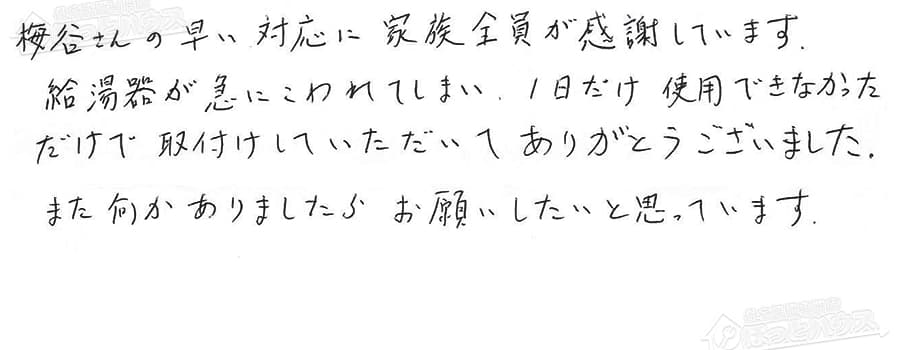 梅谷さんの早い対応に家族全員が感謝しています.
給湯器が急にこわれてしまい、1日だけ使用できなかった
だけで取付けしていただいてありがとうございました.
また何かありましたら お願いしたいと思っています.
ほっとハウス